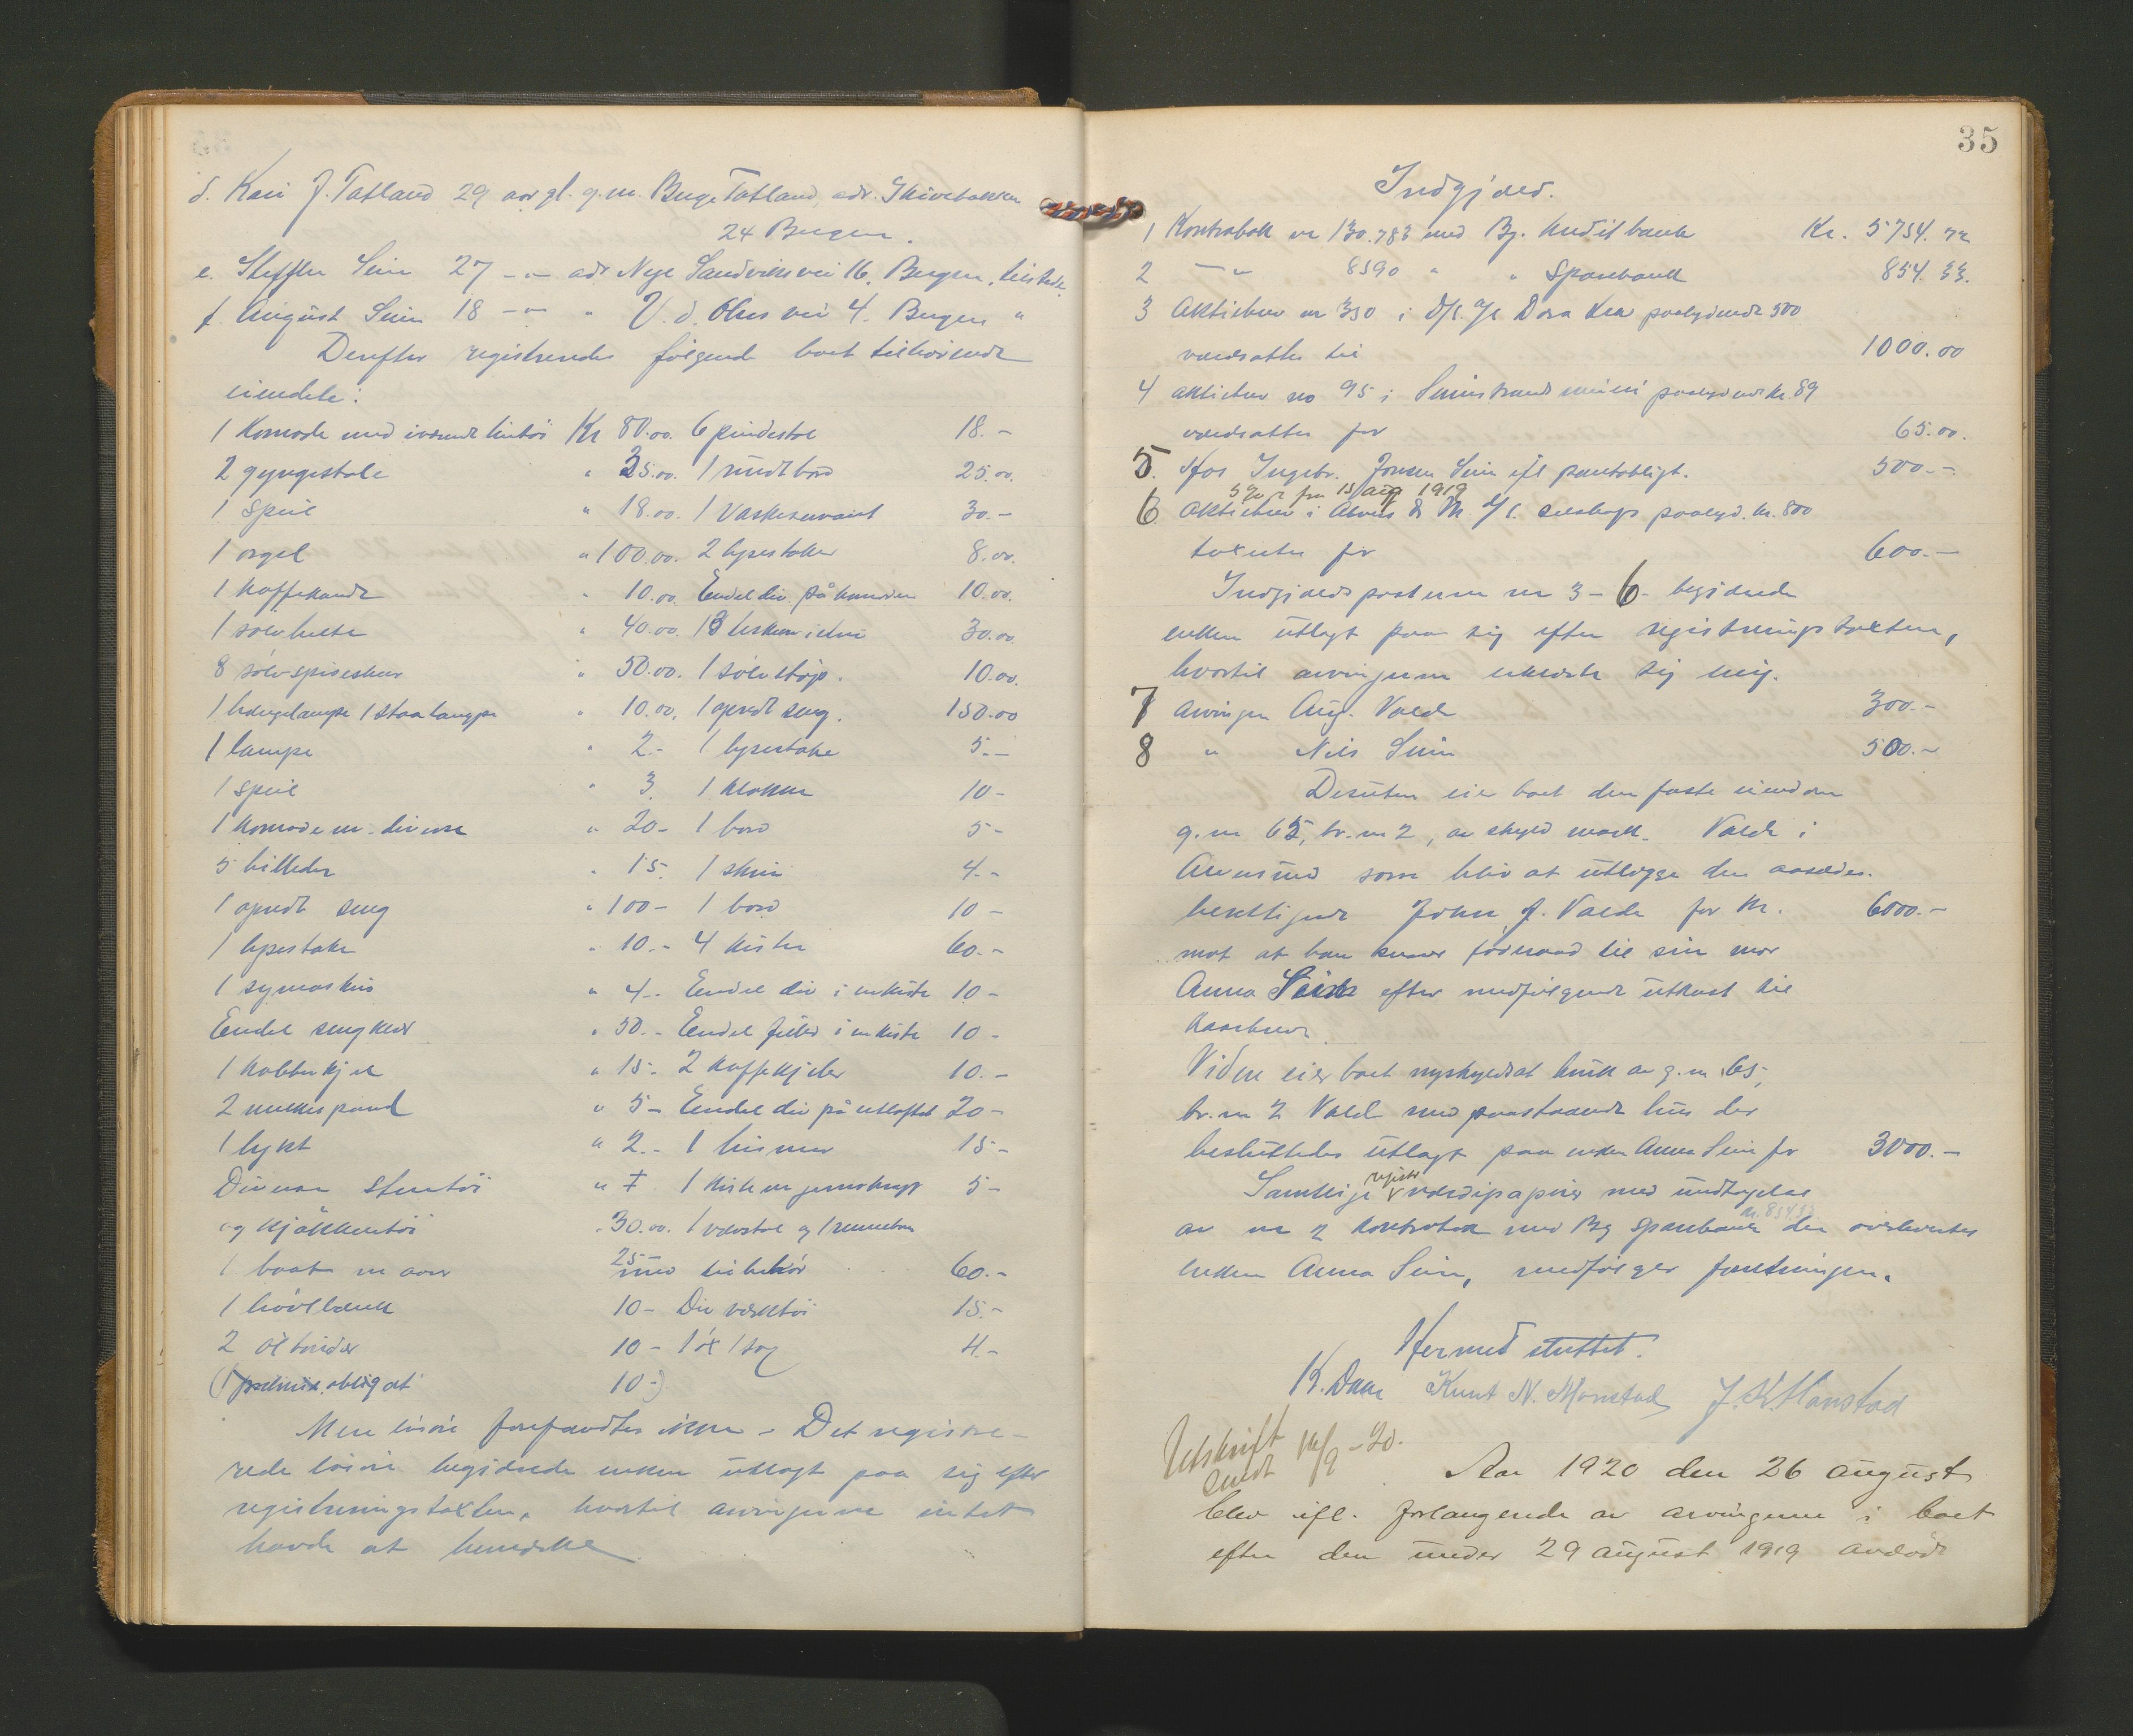 d. Kari J. Tatland 29 aar gl. g.m. Birge Tatland, adr. Skivebakken
24 Bergen.
e. Steffen Seim 27 -"- adr Nye Sandviksvei 16, Bergen, tilstede.
f. August Seim 18 -"- " J. d. Ohes vei 4. Bergen "
Derefter registreredes følgende boet tilhørende
eiendele:
1 Komode med iværende lintøi Kr 80.00. 6 pindestole 18.-
2 gyngestole " 35.00. 1 rundt bord 25.00.
1 Speil " 18.00. 1 Vaskeservant 30.-
1 orgel " 100.00. 2 lysestaker 8.00.
1 Kaffekande " 10.00. Endel div. på komoden 10.00.
1 sølvbelte " 40.00. 18 teskeer i etui 30.00
8 sølv-spiseskeer " 50.00. 1 sølv 10.00.
1 hængelampe 1 staalampe " 10.00. 1 opredt seng. 150.00
1 lampe " 2.- 1 lysestake 5.-
1 speil " 3. 1 klokke 10-
1 komode m. diverse " 20- 1 bord 5-
5 billeder " 15. 1 skrin 4.-
1 opredt seng " 100- 1 bord 10-
1 lysestake " 10.- 4 kister 60.-
1 symaskin " 4.- Endel div i en kiste 10-
Endel sengklær " 50.- Endel filler i en kiste 10-
1 kobberkjel " 15.- 2 kaffekjeler 10.-
2 melkespand " 5- Endel div på utloftet 20-
1 lykt " 2.- 1 bismer 15-
Diverse stentøi " 1 kiste m jernskrap 5-
og kjøkkentøi " 30.00. 1 vævstol og 1 rennebom
1 baat m aarer 25- med tilbehør 60.-
1 høvlbænk 10- Div verktøi 15.-
2 øltønder 10- 1 øx 1 sag 4.-
(1 præmieobligat 10-)
Mere løsøre forefandtes ikke - Det registre-
rede løsøre begjærede enken utlagt paa sig efter
registreringstaxten, hvortil arvingerne intet
havde at bemerke.
35
Indgjæld.
1 Kontrabok nr 130.783 med Bg. Kreditbank Kr. 5754.72
2 -"- 8590 " " Sparebank 854.33.
3 Aktiebrev nr 350 i D/S. A/S Dora Kra paalydende 500
værdsattes til 1000.00
4 aktiebrev no 95 i Seimstrand meieri paalydende kr. 89
værdsattes for 65.00.
5. Hos Ingebr. Jonsen Seim ifl pantobligt. 500.-
5% r fra 15 aug 1919
6 Aktiebrev i Alvers D M. A/S. selskap paalyd. kr. 800
taxertes for 600.-
Indgjældsposterne nr 3-6- begjærede
enken utlagt paa sig efter registreringstaxten,
hvortil arvingerne erklærte sig enig.
7 Arvingen Aug. Valde 300.-
8 " Nils Seim 500.-
Desuten eier boet den faste eiendom
g.nr 65, br.nr 2, av skyld mark. Valde i
Alversund som blev at utlægge den aasædes-
berettigede John J. Valde for kr. 6000.-
mot at han svarer føderaad til sin mor
Anna Seim efter medfølgende utkast til
kaarbrev.
Videre eier boet nyskyldsat bruk av g.nr 65,
br.nr 2 Valde med paastaaende hus der
besluttedes utlagt paa enken Anna Seim for 3000.-
Samtlige registr. værdipapirer med undtagelse
av nr 2 kontrabok med Bg Sparebank kr. 854.33 der overleveres
enken Anna Seim, medfølger forretningen.
Hermed sluttet.
K. Daae Knut N. Monstad J. K. Monstad
Utskrift
sendt 14/9-20.
Aar 1920 den 26 august
blev ifl. forlangende av arvingerne i boet
efter den under 29 august 1919 avdøde